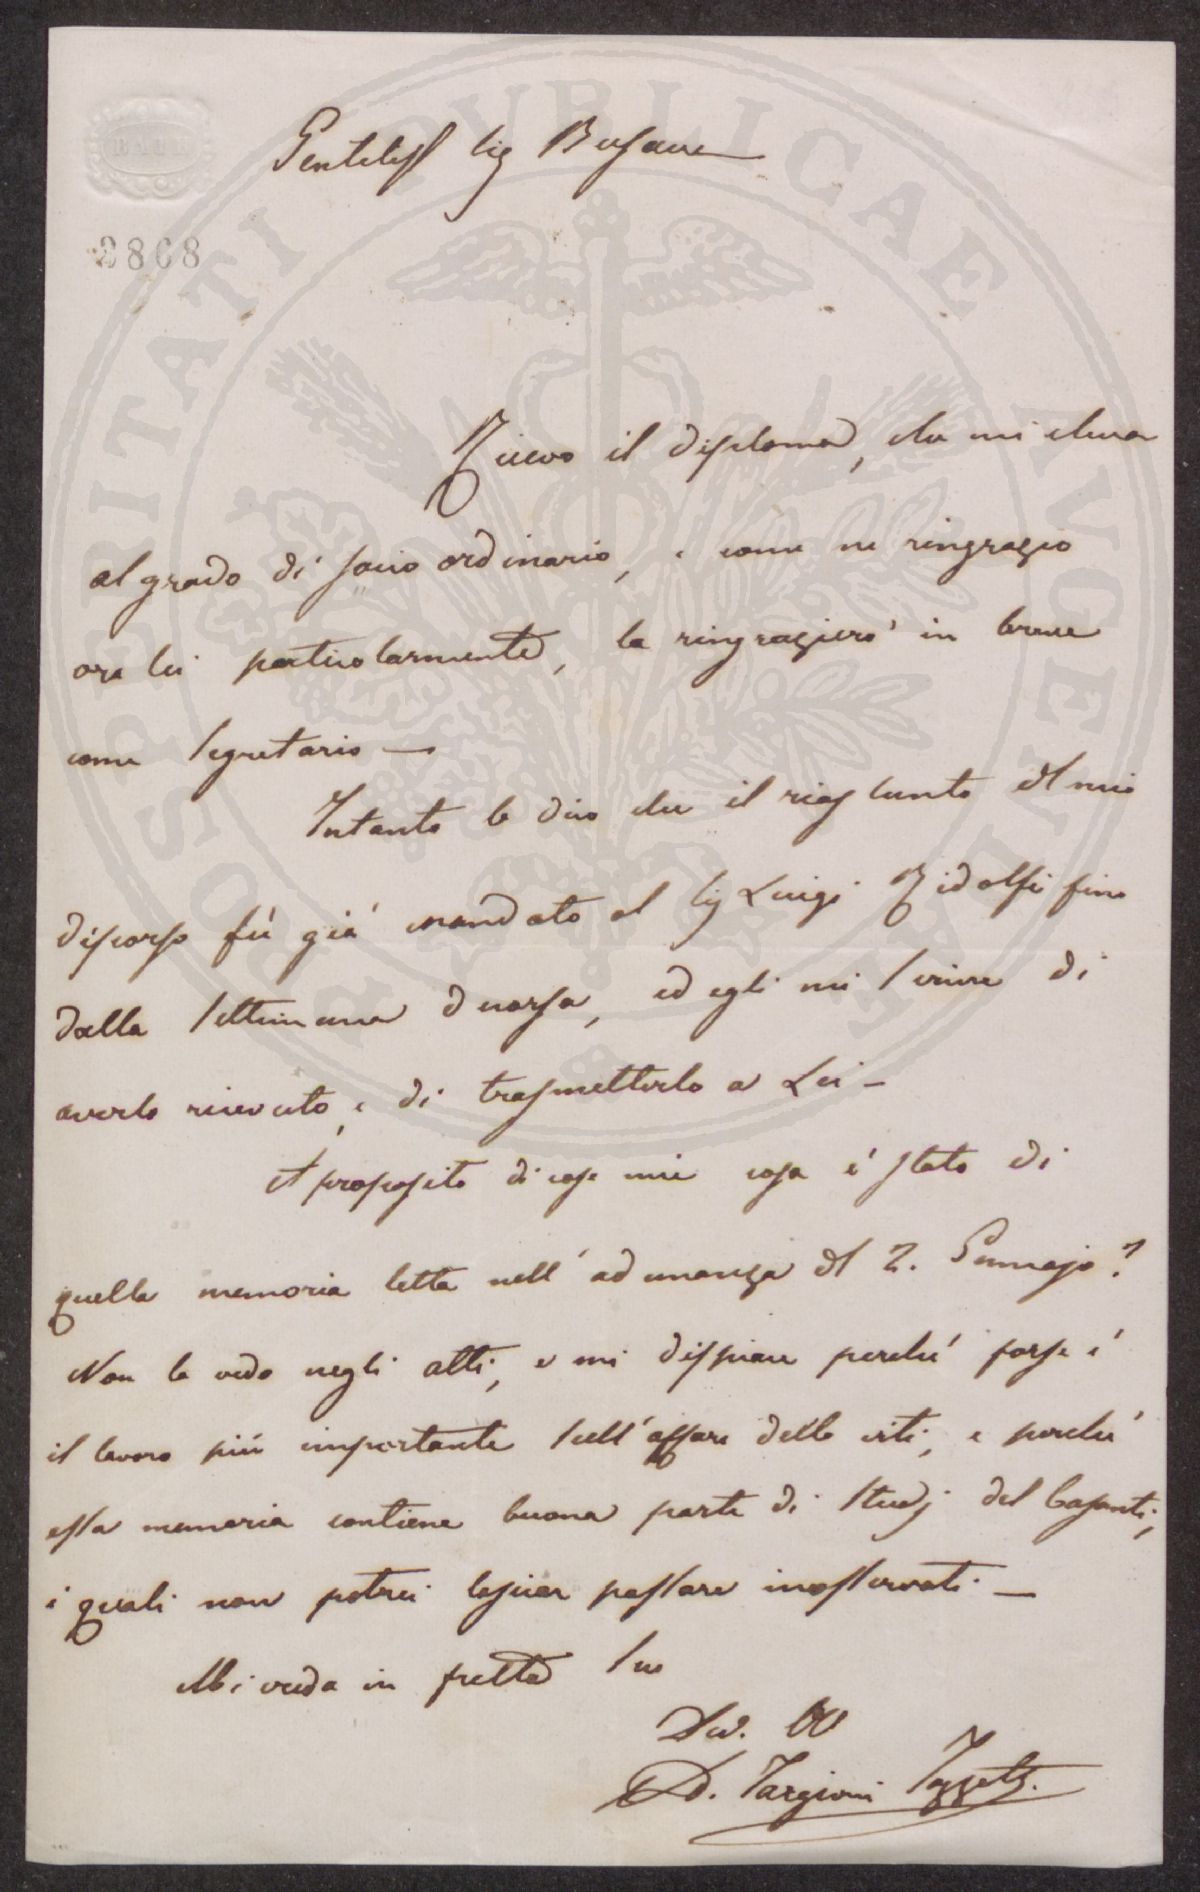 BATH
2868
Gentiliss Sig
Ricevo il diploma, che mi eleva
al grado di socio ordinario, e come ne ringrazio
ora lei particolarmente, la ringrazierò in breve
come Segretario —
Intanto le dico che il riassunto del mio
discorso fù già mandato al Sig Luigi Ridolfi fino
dalla settimana decorsa, ed egli mi scrive di
averlo ricevuto, e di trasmetterlo a Lei —
A proposito di cose mie cosa è stato di
quella memoria letta nell'adunanza del 2. Gennajo?
Non la vedo negli atti, e mi dispiace perchè forse è
il lavoro più importante sull'affare delle viti, e perchè
essa memoria contiene buona parte di studj del Casanti,
i quali non potrei lasciar passare inosservati —
Mi creda in fretta Suo
D. Targioni Tozzetti.
PROSPERITATI PVBLICAE AVGENDAE